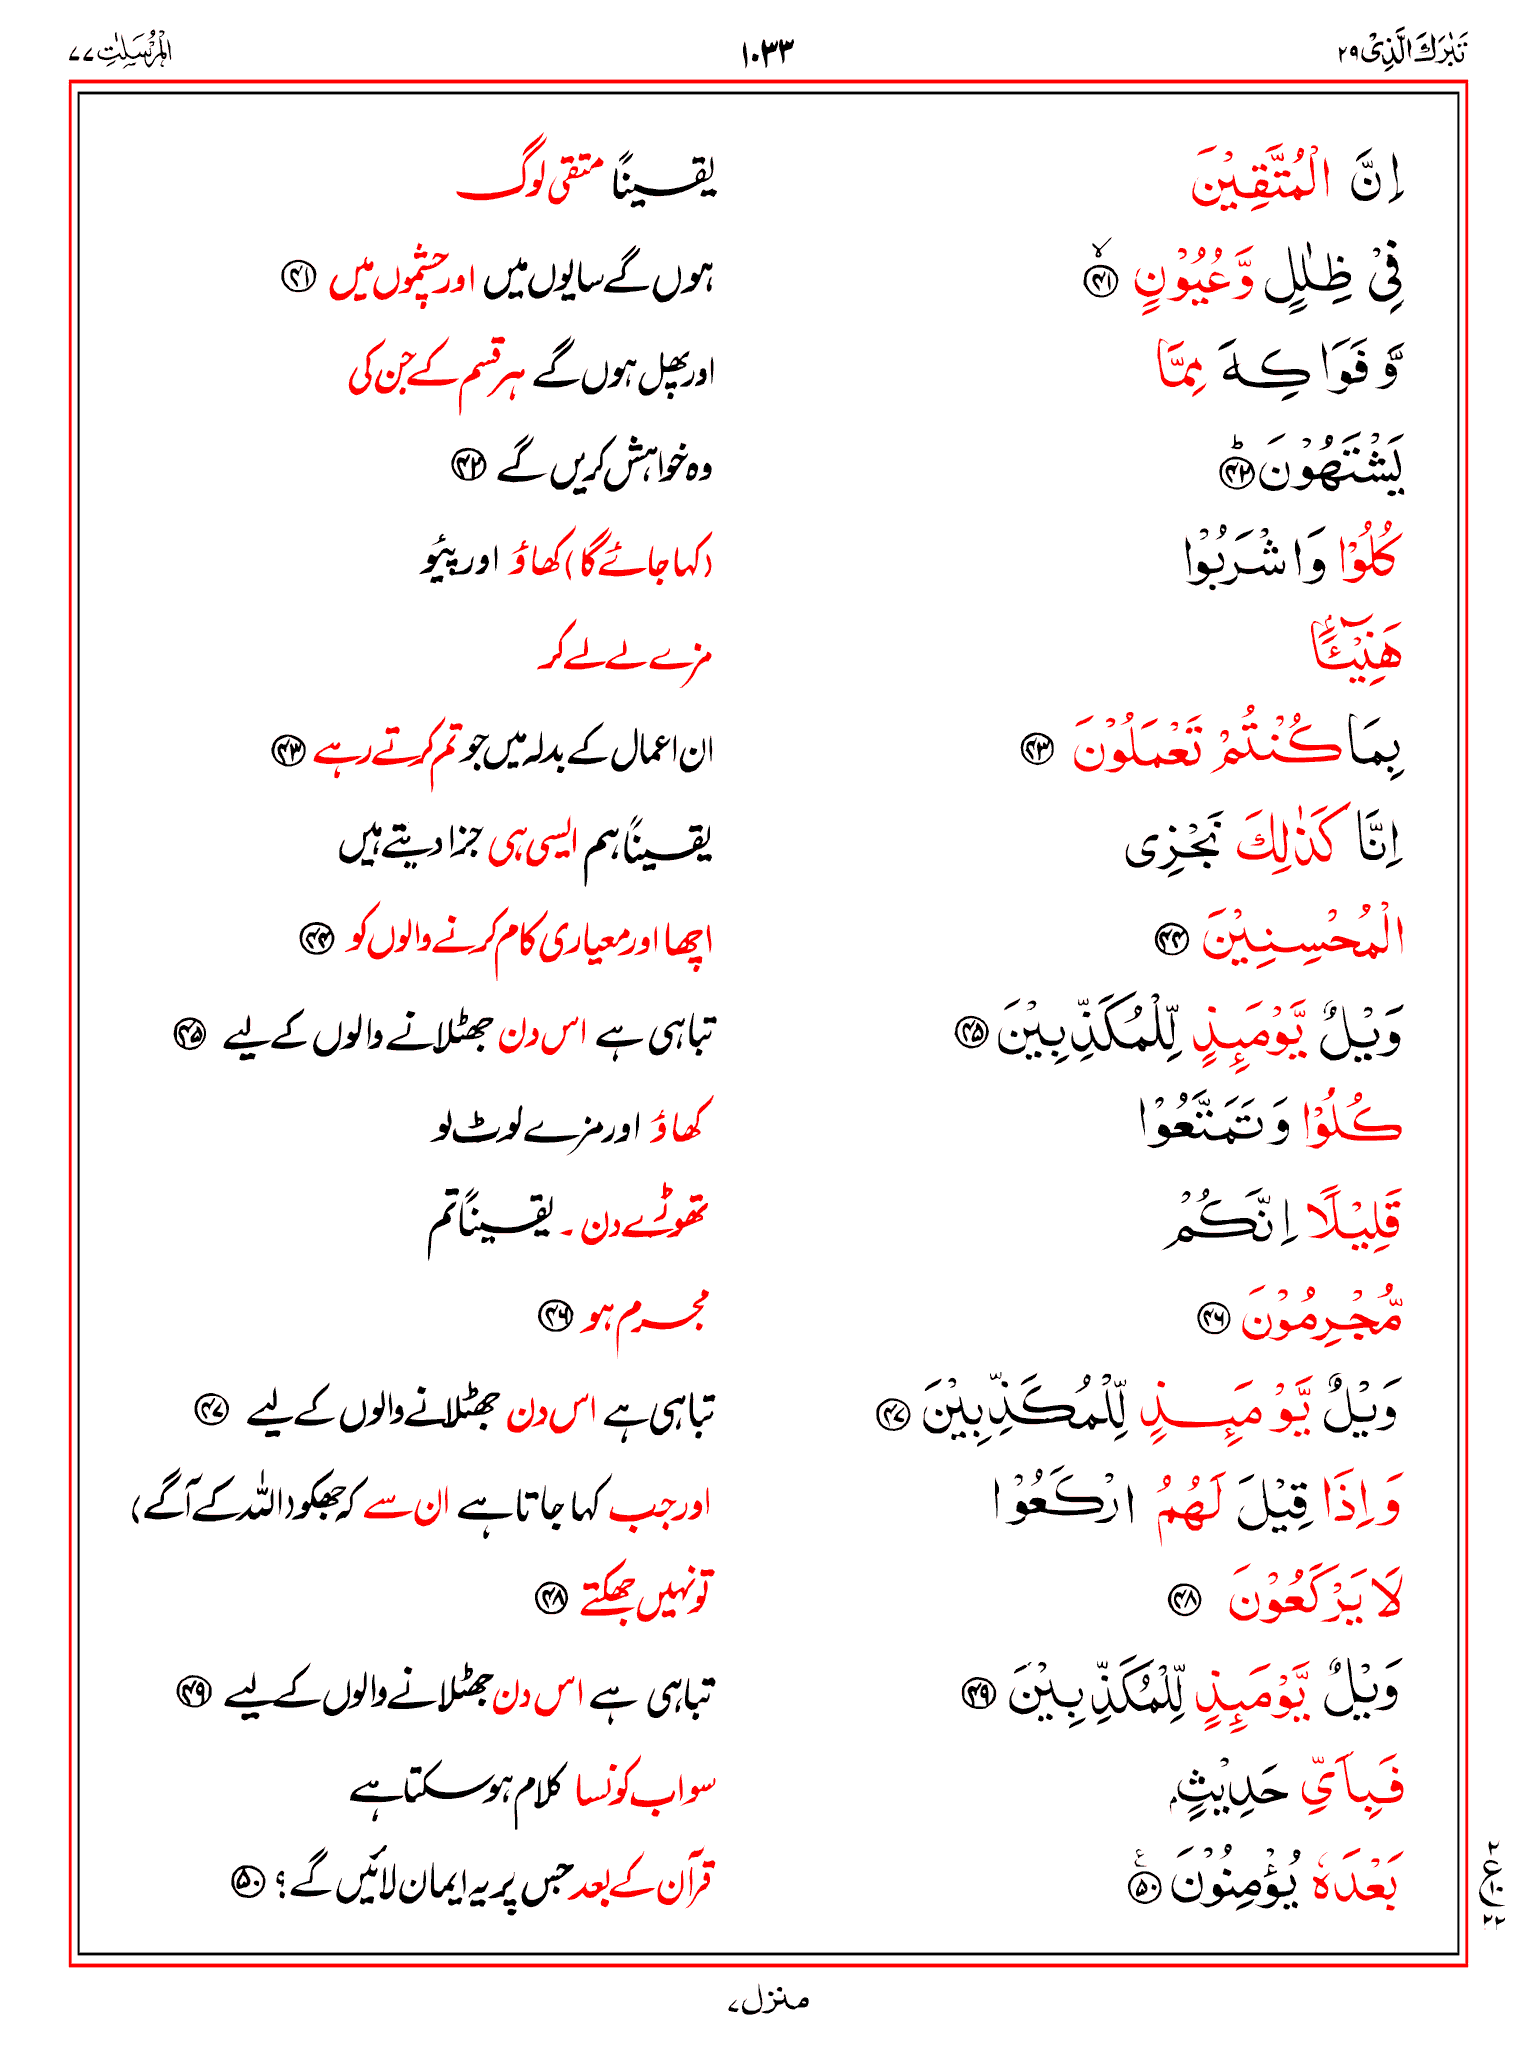 تَبٰرَكَ الَّذِیْ ۲۹ ۱۰۳۳ الْمُرْسَلٰتِ ۷۷
اِنَّ الْمُتَّقِیْنَ یقیناً متقی لوگ
فِیْ ظِلٰلٍ وَّعُیُوْنٍ ﴿۴۱﴾ۙ ہوں گے سایوں میں اور چشموں میں ﴿۴۱﴾
وَّ فَوَاكِهَ مِمَّا اور پھل ہوں گے ہر قسم کے جن کی
یَشْتَهُوْنَ ﴿۴۲﴾ؕ وہ خواہش کریں گے ﴿۴۲﴾
كُلُوْا وَاشْرَبُوْا (کہا جائے گا) کھاؤ اور پیئو
هَنِیْٓـــًٔۢا مزے لے لے کر
بِمَا كُنْتُمْ تَعْمَلُوْنَ ﴿۴۳﴾ ان اعمال کے بدلہ میں جو تم کرتے رہے ﴿۴۳﴾
اِنَّا كَذٰلِكَ نَجْزِی یقیناً ہم ایسی ہی جزا دیتے ہیں
الْمُحْسِنِیْنَ ﴿۴۴﴾ اچھا اور معیاری کام کرنے والوں کو ﴿۴۴﴾
وَیْلٌ یَّوْمَىِٕذٍ لِّلْمُكَذِّبِیْنَ ﴿۴۵﴾ تباہی ہے اس دن جھٹلانے والوں کے لیے ﴿۴۵﴾
كُلُوْا وَ تَمَتَّعُوْا کھاؤ اور مزے لوٹ لو
قَلِیْلًا اِنَّكُمْ تھوڑے دن ۔ یقیناً تم
مُّجْرِمُوْنَ ﴿۴۶﴾ مجرم ہو ﴿۴۶﴾
وَیْلٌ یَّوْمَىِٕذٍ لِّلْمُكَذِّبِیْنَ ﴿۴۷﴾ تباہی ہے اس دن جھٹلانے والوں کے لیے ﴿۴۷﴾
وَ اِذَا قِیْلَ لَهُمُ ارْكَعُوْا اور جب کہا جاتا ہے ان سے کہ جھکو (اللہ کے آگے)
لَا یَرْكَعُوْنَ ﴿۴۸﴾ تو نہیں جھکتے ﴿۴۸﴾
وَیْلٌ یَّوْمَىِٕذٍ لِّلْمُكَذِّبِیْنَ ﴿۴۹﴾ تباہی ہے اس دن جھٹلانے والوں کے لیے ﴿۴۹﴾
فَبِاَیِّ حَدِیْثٍۭ سو اب کونسا کلام ہو سکتا ہے
بَعْدَهٗ یُؤْمِنُوْنَ ﴿۵۰﴾ قرآن کے بعد جس پر یہ ایمان لائیں گے؟ ﴿۵۰﴾
۲
ع ۱۰
۲۲
منزل ۷